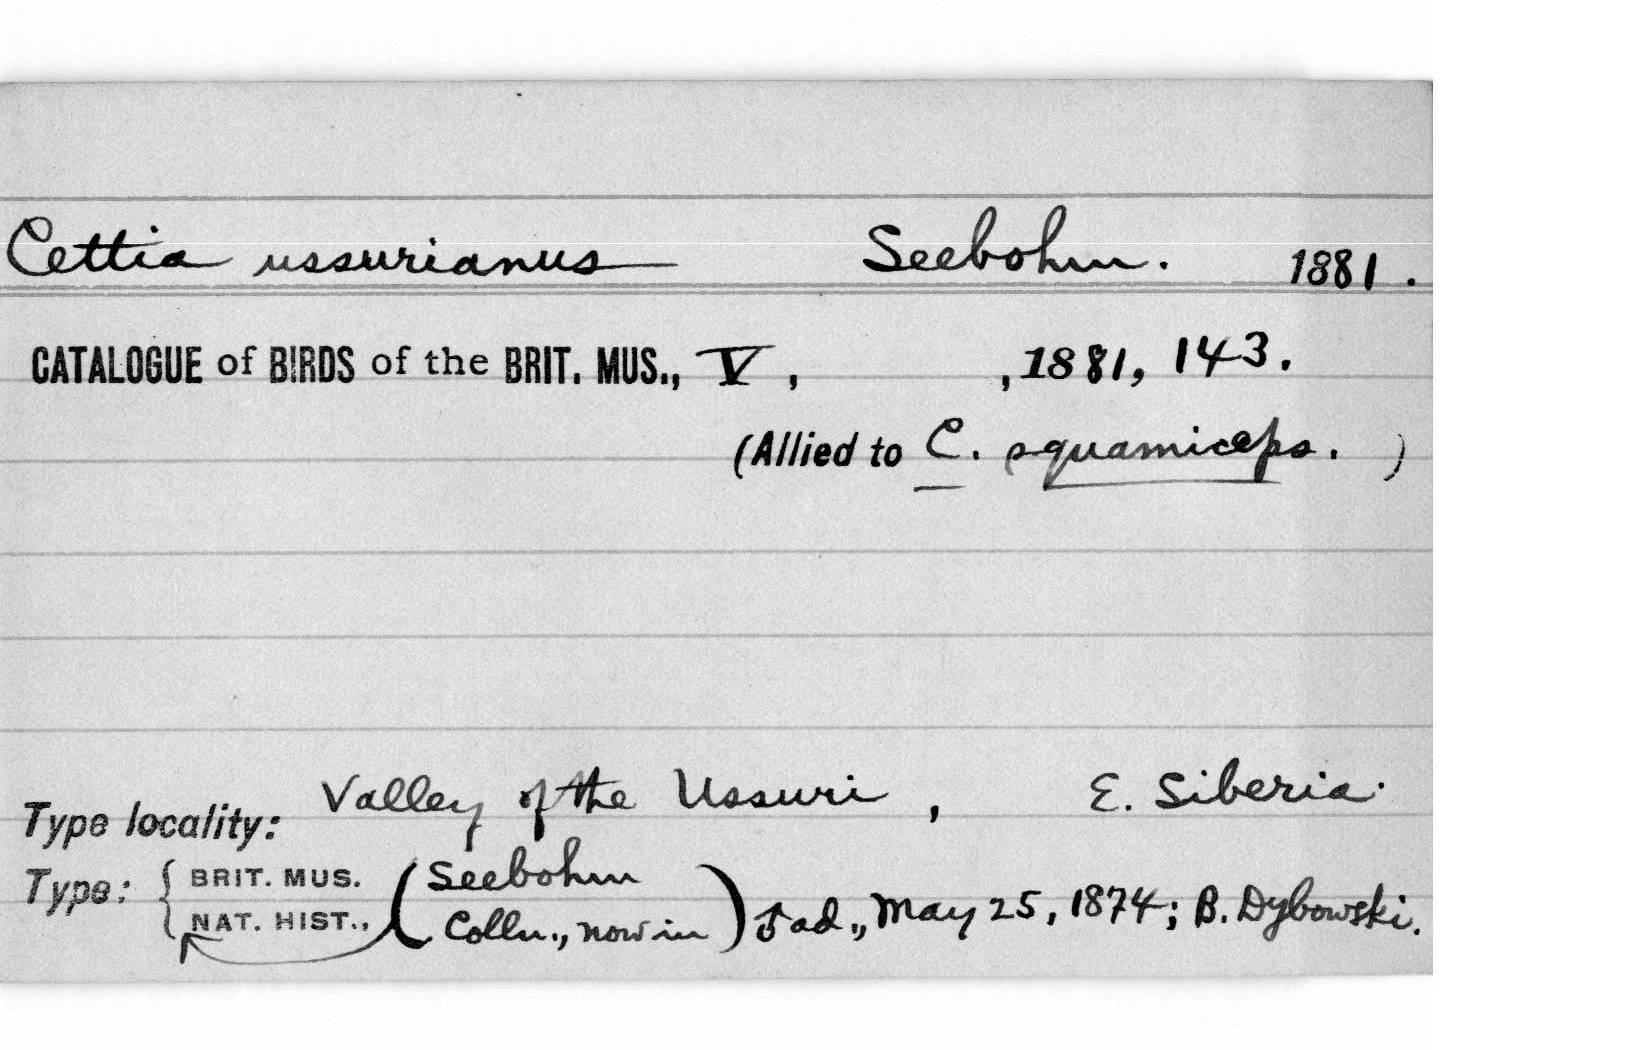 Cettia ussurianus Seebohm. 1881.
CATALOGUE of BIRDS of the BRIT. MUS., V, , 1881, 143.
(Allied to C. squamiceps. )
Type locality: Valley of the Ussuri, E. Siberia.
Type: { BRIT. MUS. NAT. HIST., (Seebohm Colln., now in) ♂ ad., May 25, 1874; B. Dybowski.